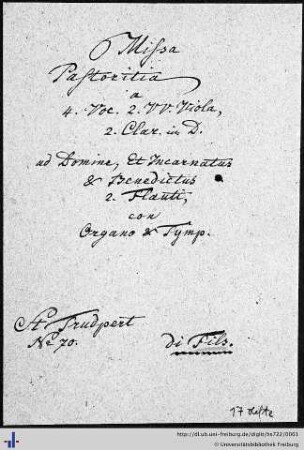 Missa
Pastoritia
a
4. Voc. 2. VV. Viola,
2. Clar. in D.
ad Domine, Et Incarnatus
& Benedictus
2. Flauti,
con
Organo & Tymp.
St. Trudpert
No 70.
di Fils.
17 Hefte
http://dl.ub.uni-freiburg.de/diglit/hs722/0001
© Universitätsbibliothek Freiburg